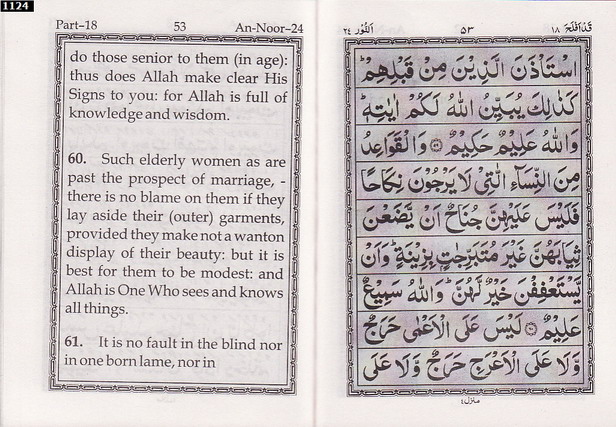 1124
Part–18 53 An-Noor–24
do those senior to them (in age):
thus does Allah make clear His
Signs to you: for Allah is full of
knowledge and wisdom.
60. Such elderly women as are
past the prospect of marriage, -
there is no blame on them if they
lay aside their (outer) garments,
provided they make not a wanton
display of their beauty: but it is
best for them to be modest: and
Allah is One Who sees and knows
all things.
61. It is no fault in the blind nor
in one born lame, nor in
قَدْ اَفْلَحَ ١٨ ٥٣ اَلنُّوْر ٢٤
اسْتَاْذَنَ الَّذِيْنَ مِنْ قَبْلِهِمْ ؕ
كَذٰلِكَ يُبَيِّنُ اللّٰهُ لَكُمْ اٰيٰتِهٖ ؕ
وَاللّٰهُ عَلِيْمٌ حَكِيْمٌ ۝٥٩ وَالْقَوَاعِدُ
مِنَ النِّسَآءِ الّٰتِيْ لَا يَرْجُوْنَ نِكَاحًا
فَلَيْسَ عَلَيْهِنَّ جُنَاحٌ اَنْ يَّضَعْنَ
ثِيَابَهُنَّ غَيْرَ مُتَبَرِّجٰتٍۭ بِزِيْنَةٍ ؕ وَاَنْ
يَّسْتَعْفِفْنَ خَيْرٌ لَّهُنَّ ؕ وَاللّٰهُ سَمِيْعٌ
عَلِيْمٌ ۝٦٠ لَيْسَ عَلَى الْاَعْمٰى حَرَجٌ
وَّلَا عَلَى الْاَعْرَجِ حَرَجٌ وَّلَا عَلَى
منزل ٤